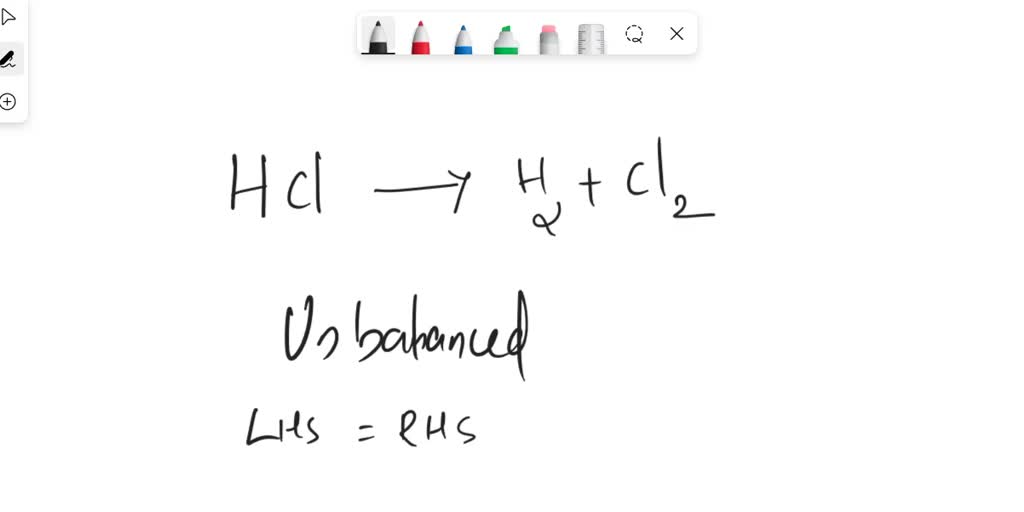 HCl → H2 + Cl2
Unbalanced
LHS = RHS